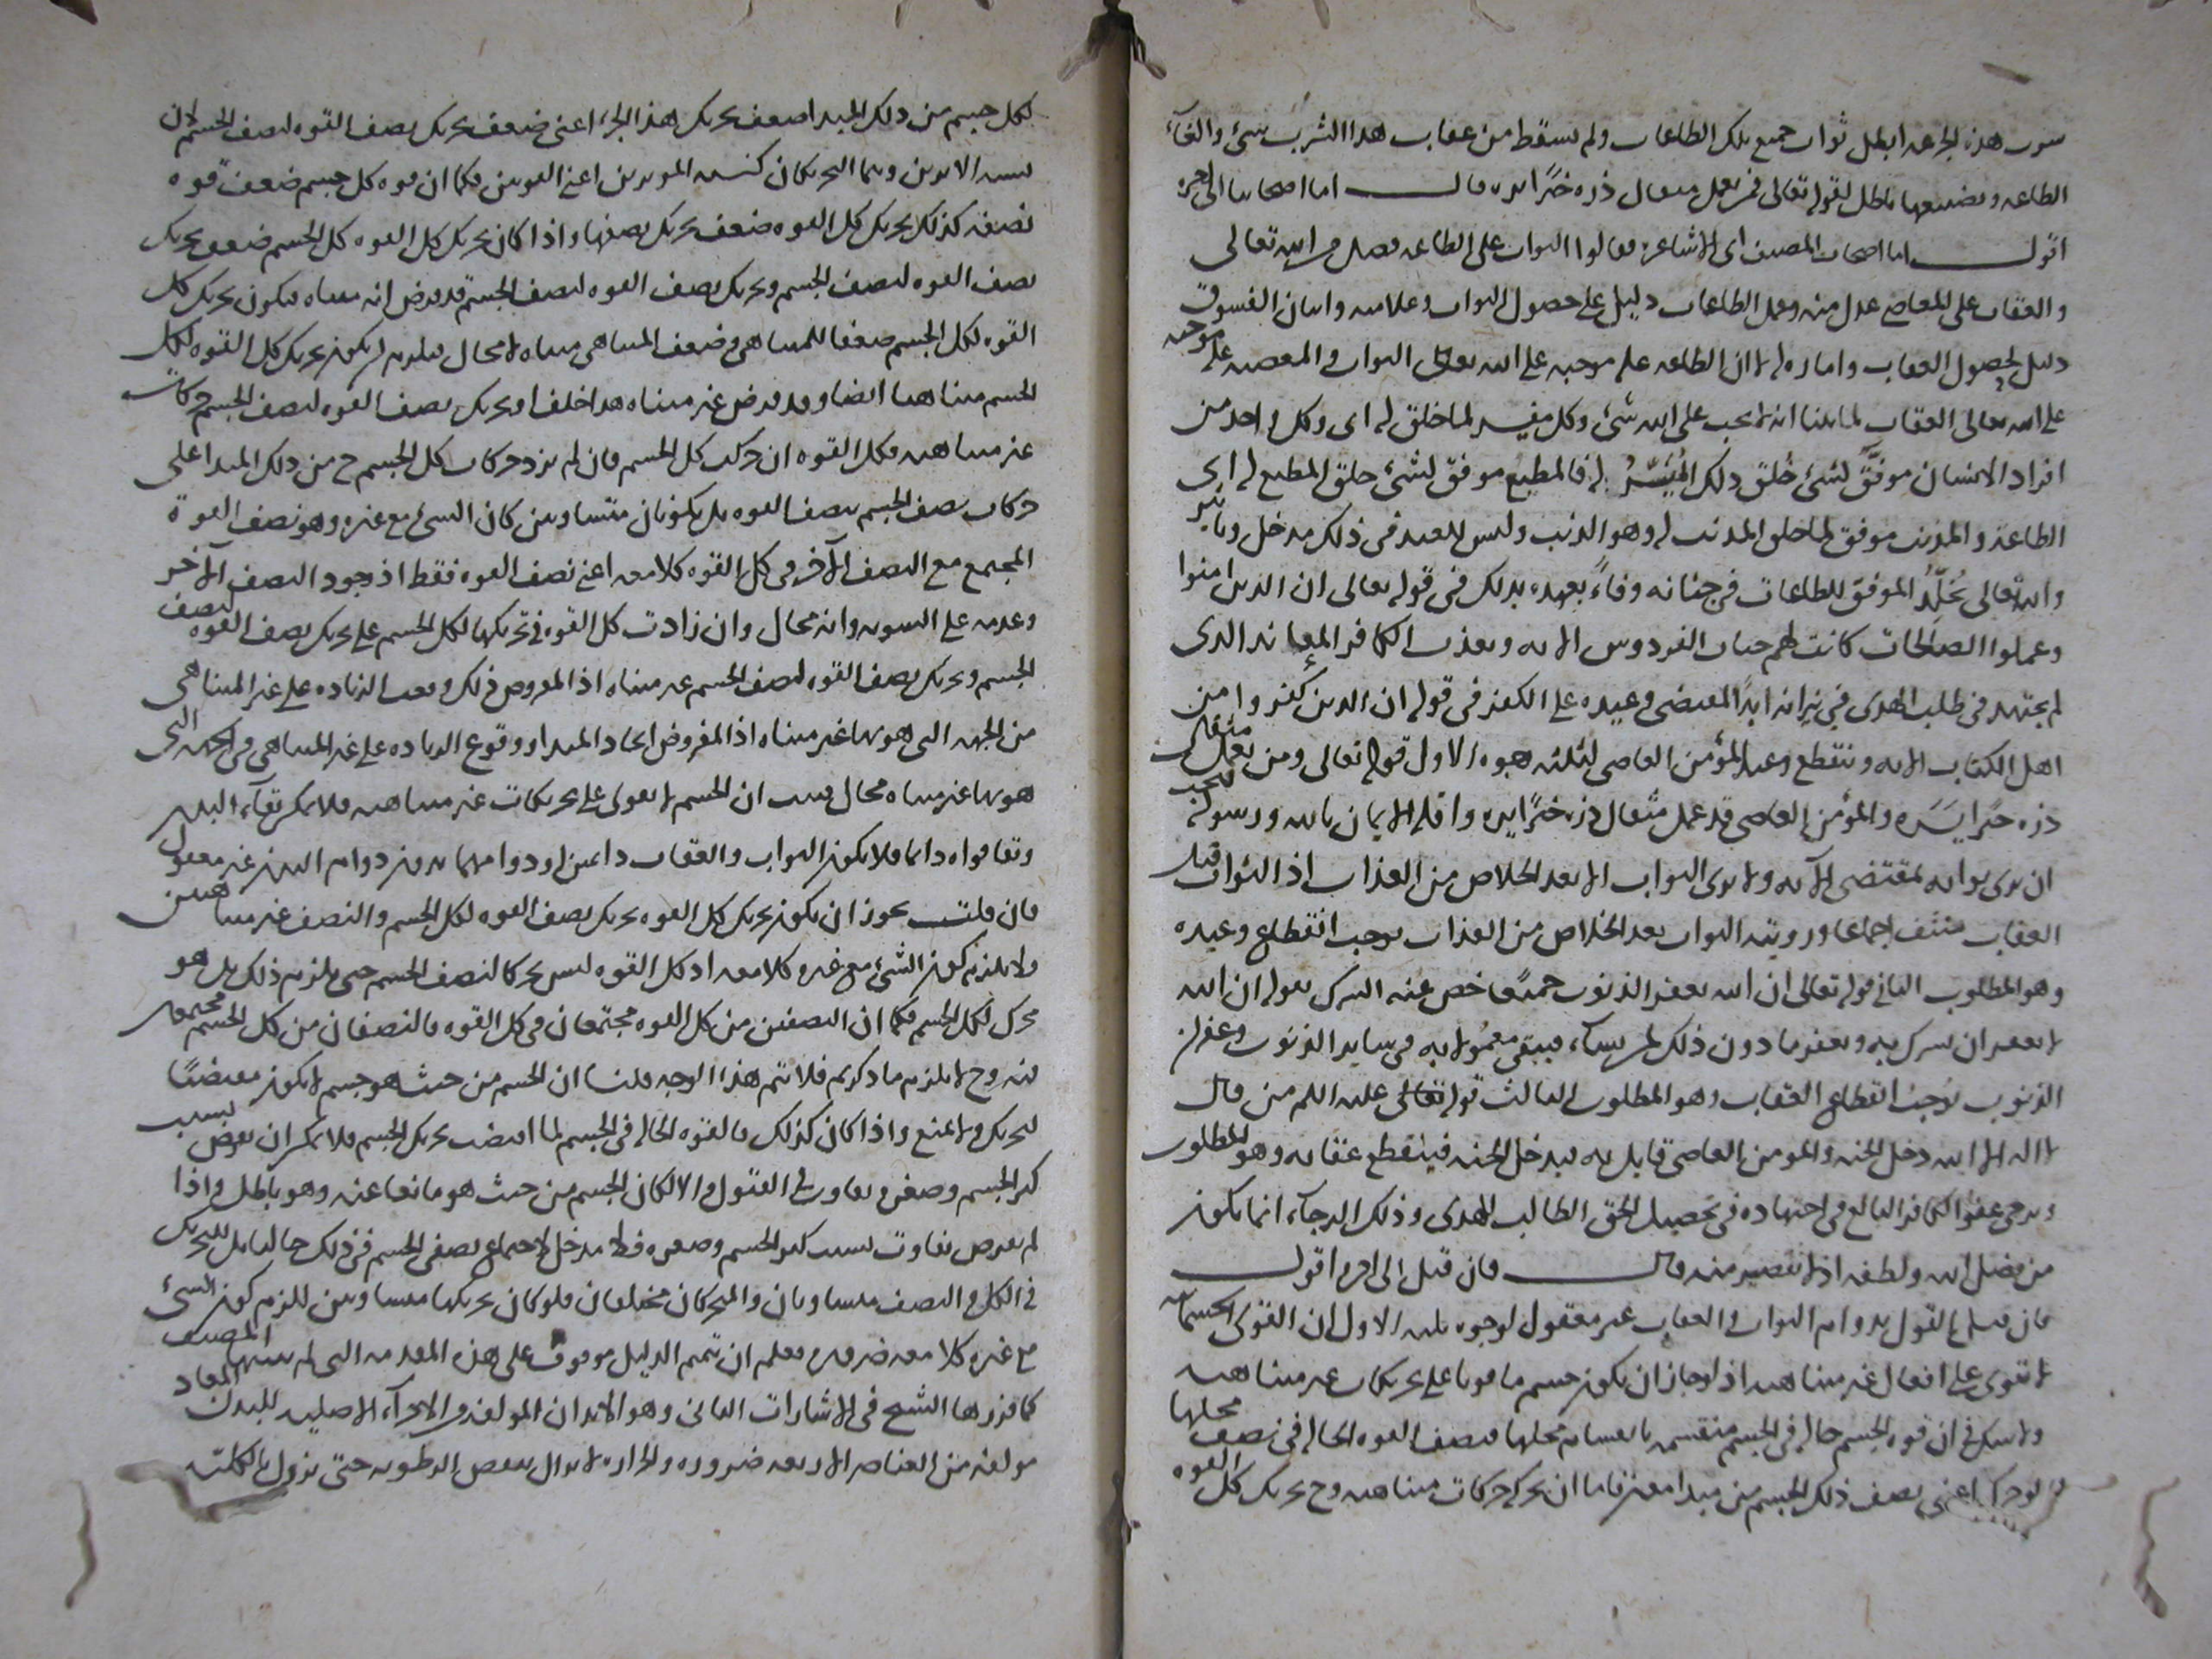 هذه الجرعة ابطل ثواب جميع تلك الطاعات ولم يسقط من عقاب هذا الشرب شئ والغاء
الطاعه وتضييعها باطل لقوله تعالى فمن يعمل مثقال ذره خيرًا يره قال اما اصحابنا الى اخره
اقول اما اصحاب المصنف اى الاشاعرة فقالوا الثواب على الطاعه فضل من الله تعالى
والعقاب على المعاصى عدل منه وعمل الطاعات دليل على حصول الثواب وعلامه واتيان الفسوق
دليل لحصول العقاب واماره له لا ان الطاعه عله موجبه على الله تعالى الثواب والمعصيه علة موجبه
على الله تعالى العقاب لما بينا انه لا يجب على الله شئ وكل ميسر لما خلق له اى وكل واحد من
افراد الانسان موفق لشئ خلق ذلك الميسر له فالمطيع موفق لشئ خلق المطيع له اى
الطاعة والمذنب موفق لما خلق المذنب له وهو الذنب وليس للعبد فى ذلك مدخل وتاثير
والله تعالى يخلد الموفق للطاعات فى جنانه وفاءً بعهده بذلك فى قوله تعالى ان الذين امنوا
وعملوا الصالحات كانت لهم جنات الفردوس الايه ويعذب الكافر المعاند الذى
لم يجتهد فى طلب الهدى فى نيرانه ابدًا لمقتضى وعيده على الكفر فى قوله ان الذين كفروا من
اهل الكتاب الايه وينقطع وعيد المؤمن العاصى لثلثه وجوه الاول قوله تعالى ومن يعمل مثقال
ذره خيرا يره والمؤمن العاصى قد عمل مثقال ذره خيرًا يره واقله الايمان بالله ورسوله فيجب
ان يرى ثوابه بمقتضى الآيه ولا يرى الثواب الا بعد الخلاص من العذاب اذ الثواب قبل
العقاب منتف اجماعا ورويته الثواب بعد الخلاص من العذاب يوجب انقطاع وعيده
وهو المطلوب الثانى قوله تعالى ان الله يغفر الذنوب جميعًا خص عنه الشرك بقوله ان الله
لا يغفر ان يشرك به ويغفر ما دون ذلك لمن يشاء فيبقى معمولا به فى ساير الذنوب وغفران
الذنوب يوجب انقطاع العقاب وهو المطلوب الثالث قوله عليه السلم من قال
لا اله الا الله دخل الجنه والمومن العاصى قايل به فيدخل الجنه فينقطع عقابه وهو المطلوب
ويرجى عفو الكافر البالغ فى اجتهاده فى تحصيل الحق الطالب للهدى وذلك الرجاء انما يكون
من فضل الله ولطفه اذ لا تقصير منه قال فان قيل الى اخره اقول
فان قيل القول بدوام الثواب والعقاب غير معقول لوجوه ثلثه الاول ان القوى الجسمانيه
لا تقوى على افعال غير متناهيه اذ لو جاز ان يكون جسم ما قويا على تحريكات غير متناهيه
ولا شك فى ان قوه الجسم حاله فى الجسم منقسمه بانقسام محلها فنصف القوه الحاله فى نصف محلها
لو حرك اعنى نصف ذلك الجسم من مبدا معين فاما ان يحركه حركات متناهيه وح تحريك كل القوه
لكل جسم من ذلك المبدا ضعف تحريك هذا الجزء اعنى ضعف تحريك نصف القوه لنصف الجسم لان
نسبه الاثرين وهما التحريكان كنسبه الموثرين اعنى القوتين فكما ان قوه كل جسم ضعف قوه
نصفه كذلك تحريك كل القوه ضعف تحريك نصفها واذا كان تحريك كل القوه كل الجسم ضعف تحريك
نصف القوه لنصف الجسم وتحريك نصف القوه لنصف الجسم قد فرض انه متناه فيكون تحريك كل
القوه لكل الجسم ضعفا للمتناهى وضعف المتناهى متناه لا محال فيلزم ان يكون تحريك كل القوه لكل
الجسم متناهيا ايضا وقد فرض غير متناه هذا خلف او تحريك نصف القوه لنصف الجسم حركات
غير متناهيه فكل القوه ان حركت كل الجسم فان لم يزد حركات كل الجسم ح من ذلك المبدا على
حركات نصف الجسم بنصف القوه بل يكونان متساويين كان الشئ مع غيره وهو نصف القوة
المجتمع مع النصف الآخر فى كل القوه كلا معه اعنى نصف القوه فقط اذ وجود النصف الآخر
وعدمه على السويه وانه محال وان زادت كل القوه فى تحريكها لكل الجسم على تحريك نصف القوه لنصف
الجسم وتحريك نصف القوه لنصف الجسم غير متناه اذ المفروض ذلك وقعت الزياده على غير المتناهى
من الجهه التى هو بها غير متناه اذ المفروض اتحاد المبدا ووقوع الزياده على غير المتناهى فى الجهه التى
هو بها غير متناه محال فثبت ان الجسم لا يقوى على تحريكات غير متناهيه فلا يمكن بقاء البدن
وبقا قواه دائما فلا يكون الثواب والعقاب دائمين اذ دوامهما بدون دوام البدن غير معقول
فان قلت يجوز ان يكون تحريك كل القوه تحريك نصف القوه لكل الجسم والنصف غير متناهيين
ولا يلزم كون الشئ مع غيره كلا معه اذ كل القوه ليس محركا لنصف الجسم حتى يلزم ذلك بل هو
محرك لكل الجسم فكما ان النصفين من كل القوه مجتمعان فى كل القوه فالنصفان من كل الجسم مجتمعان
فيه وح لا يلزم ما ذكرتم فلا تتم هذا الوجه قلنا ان الجسم من حيث هو جسم لا يكون مقتضيًا
لتحريك ولا لمنع واذا كان كذلك فالقوه الحاله فى الجسم لما اقتضت تحريك الجسم فلا يمكن ان يعرض بسبب
كبر الجسم وصغره تفاوت فى القبول والا لكان الجسم من حيث هو مانعا عنه وهو باطل واذا
لم يعرض تفاوت بسبب كبر الجسم وصغره فلا مدخل لاجتماع نصفى الجسم فى ذلك
فى الكل والنصف متساويان والمحركان مختلفان فلو كان تحريكهما متساويين للزم كون الشئ
مع غيره كلا معه ضروره فعلم ان تتميم الدليل موقوف على هذه المقدمه التى لم يبينها المصنف
كما قررها الشيخ فى الاشارات الثانى وهو الابدان المولفه والاجزاء الاصليه للبدن المعاد
مولفه من العناصر الاربعه ضروره والحراره لا يزال ينقص الرطوبه حتى تزول بالكليه